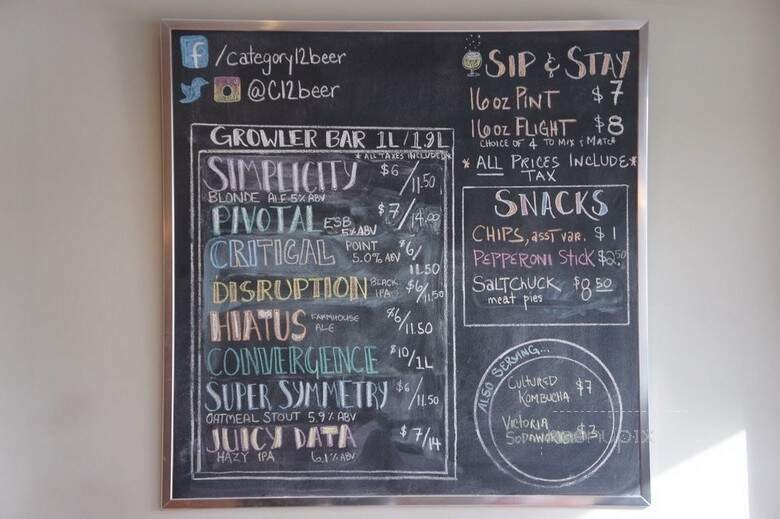 f /category12beer
@C12beer
GROWLER BAR 1L/1.9L
* ALL TAXES INCLUDED *
SIMPLICITY $6/11.50
BLONDE ALE 5% ABV
PIVOTAL ESB 5% ABV $7/14.00
CRITICAL POINT 5.0% ABV $6/11.50
DISRUPTION BLACK IPA $6/11.50
HIATUS FARMHOUSE ALE $6/11.50
CONVERGENCE $10/1L
SUPER SYMMETRY $6/11.50
OATMEAL STOUT 5.9% ABV
JUICY DATA $7/14
HAZY IPA 6.1% ABV
SIP & STAY
16oz PINT $7
16oz FLIGHT $8
CHOICE OF 4 TO MIX & MATCH
* ALL PRICES INCLUDE *
TAX
SNACKS
CHIPS, ASST VAR. $1
PEPPERONI STICK $2.50
SALTCHUCK $8.50
meat pies
ALSO SERVING...
CULTURED KOMBUCHA $7
VICTORIA SODAWORKS $3
menupix